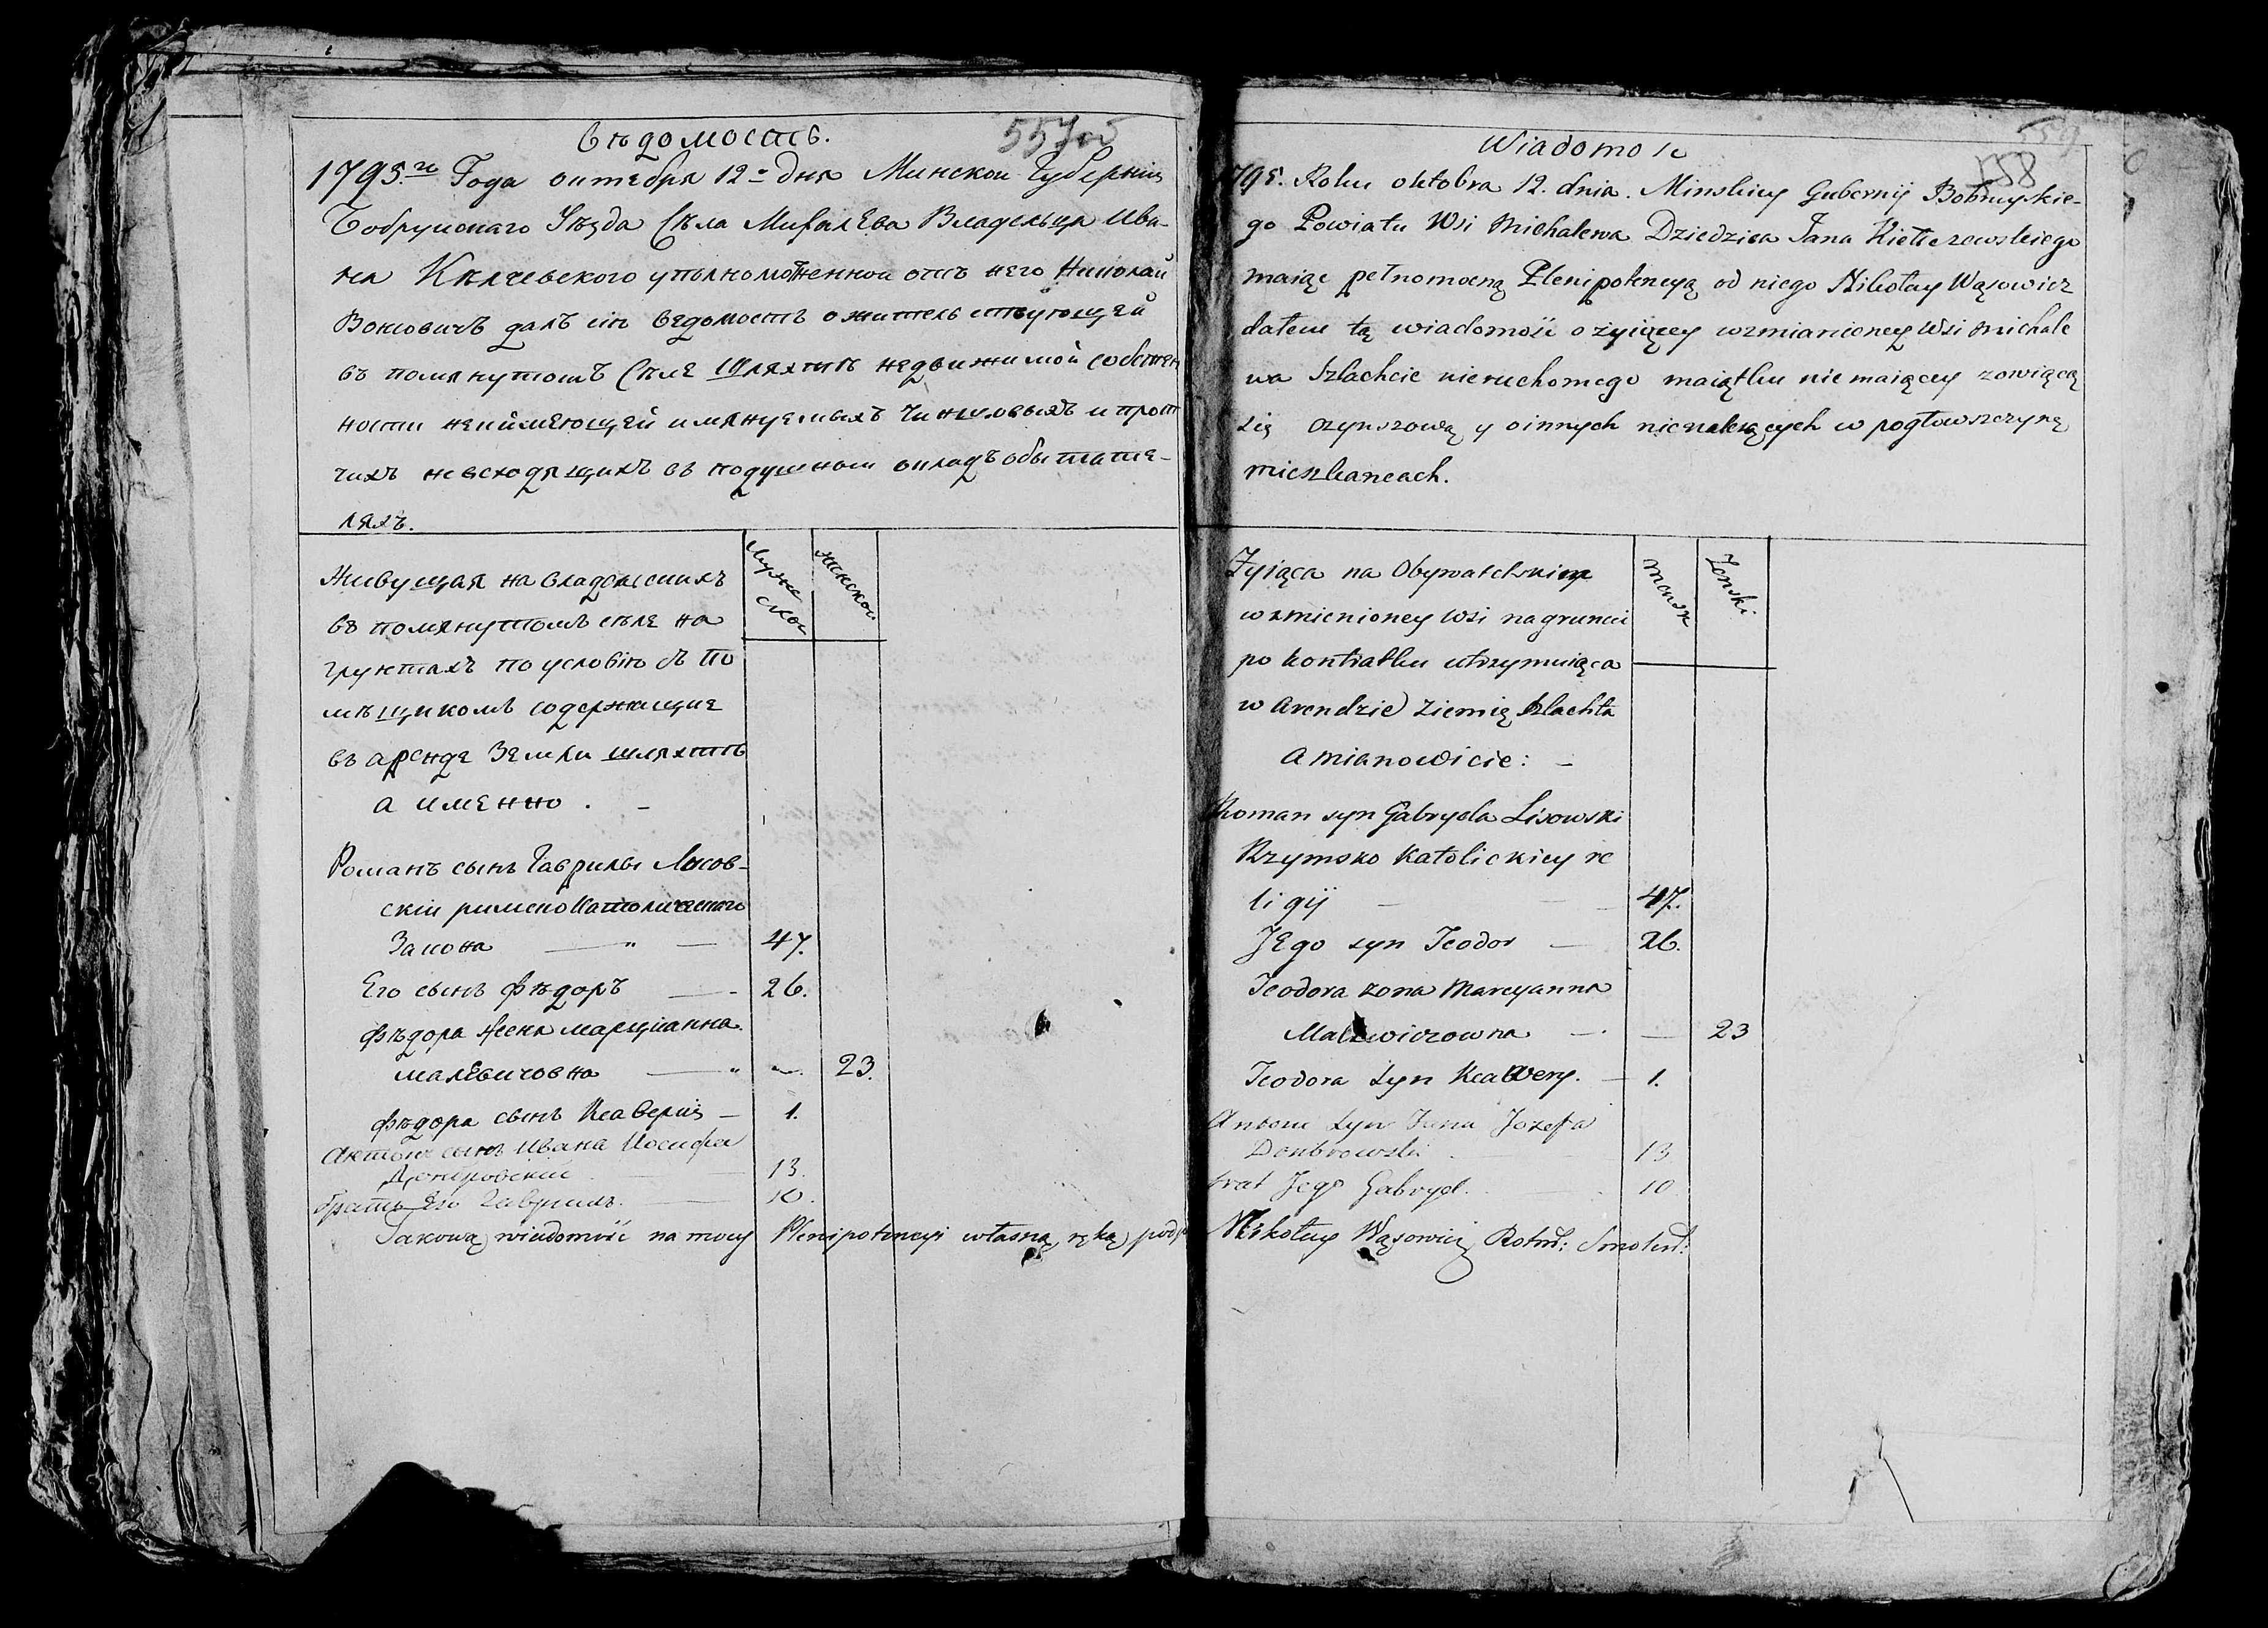 вѣдомость.
557об
1795.го Года октебря 12-о дня Минской Губернїи
Бобруцкаго Уѣзда Сѣла Михалева Владельца Ива-
на Кѣлчевского уполноможенной отъ него Николай
Вонсовичъ далъ сїю ведомость о жительствующей
въ помянутомъ Сѣле шляхтѣ недвижимой собствен
ности неиймеющей имянуемыхъ чиншовыхъ и прот
чихъ невсходящихъ въ подушной окладъ обытате-
ляхъ.
Мужескои
женской
Живущая на владелскихъ
въ помянутомъ сѣле на
грунтахъ по условїю съ по
мѣщикомъ содержащие
въ аренде земли шляхтѣ
а именно . -
Романъ сынъ Гаврилы Лисов-
скїи римско католическаго
Закона — " — 47.
Его сынъ Фѣдоръ — 26.
Фѣдора жена марцианна
малевичовна — " — 23.
Фѣдора сынъ Ксаверїи — 1.
Антонъ сынъ Ивана Иосифа
Домбровскїи — 13.
братъ Его Гаврїилъ. — 10.
Takową wiadomość na mocy Plenipotencyi własną ręką podp
Wiadomość
59
558
795. Roku oktobra 12. dnia. Minskiey Gubernij Bobruyskie-
go Powiatu Wsi Michalewa Dziedzica Jana Kiełczewskiego
maiąc pełnomocną Plenipotencyą od niego Mikołay Wąsowicz
dałem tą wiadomość o żyiącey wzmianioney Wsi michale
wa szlachcie nieruchomego maiątku niemaiącey zowiącą
się czynszową y oinnych nienależących w pogłowszczyznę
mieszkancach.
mensk
Zenski
Zyiąca na Obywatelskim
wzmienioney wsi na grunci
po kontraktu utrzymuiąca
w arendzie ziemię szlachta
a mianowicie: -
Roman syn Gabryela Lisowski
Rzymsko Katolickiey re
ligij — 47.
JEgo syn Teodor — 26.
Teodora zona Marcyanna
Malewiczowna — — 23
Teodora syn Xawery. — 1.
Antoni syn Jana Jozefa
Dombrowski — 13
brat Jego Gabryel. — 10
Mikołay Wąsowicz Rotm: Smoleń: